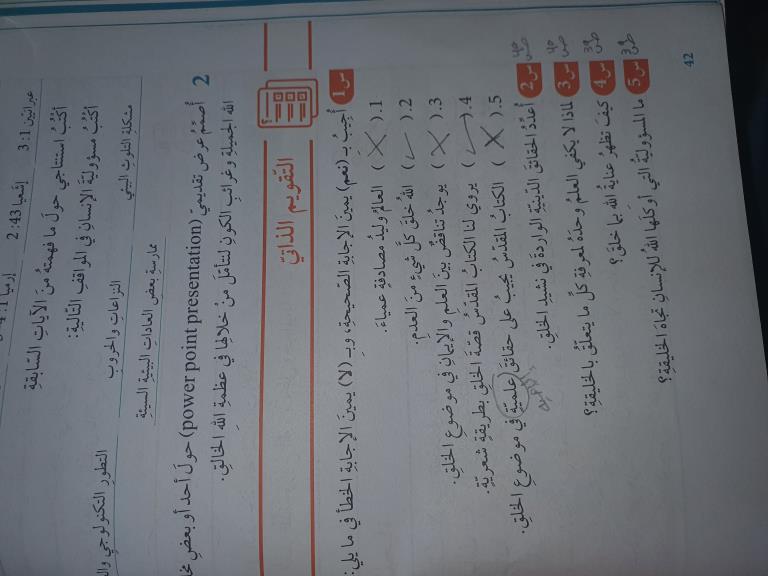 عبرانيّين 3:1 إشَعيا 2:43 إرميا
أكتُبُ استنتاجي حولَ ما فهمتهُ مِنَ الآياتِ السّابقةِ
أكتُبُ مسؤوليّةَ الإنسانِ في المواقفِ التّاليةِ:
مشكلة التلوثِ البيئي النزاعات والحروب التطور التكنولوجي
ممارسةِ بعض العاداتِ البيئيةِ السيئةِ
2 أُصمِّمُ عرض تقديميّ (power point presentation) حولَ أحد أو بعضِ
الله الجميلة وغرائبِ الكونِ لنتأمَّلَ مِنْ خلالها في عظمةِ الله الخالقِ.
التّقويم الذاتيّ
س1 أُجيبُ بـ (نعم) يمينَ الإجابةِ الصّحيحةِ، وبـِ (لا) يمينَ الإجابةِ الخطأ في ما يلي:
1. ( X ) العالمُ وليدُ مصادفةٍ عمياءَ.
2. ( ✓ ) اللهُ خلقَ كلَّ شيءٍ مِنَ العدمِ.
3. ( X ) يوجدُ تناقضٌ بينَ العلمِ والإيمانِ في موضوعِ الخلقِ.
4. ( ✓ ) يروي لنا الكتابُ المقدّسُ قصّةَ الخلقِ بطريقةٍ شعريّةٍ.
5. ( X ) الكتابُ المقدّسُ يجيبُ على حقائقَ علميّةٍ في موضوعِ الخلقِ.
س2 أُعدِّدُ الحقائقَ الدّينيّةَ الواردةَ في نشيدِ الخلقِ.
س3 لماذا لا يكفي العلمُ وحدَهُ لمعرفةِ كلِّ ما يتعلّقُ بالخليقةِ؟
س4 كيفَ تظهرُ عنايةُ اللهِ بما خلقَ؟
س5 ما المسؤوليّةُ التي أوكلَها اللهُ للإنسانِ تجاهَ الخليقةِ؟
42